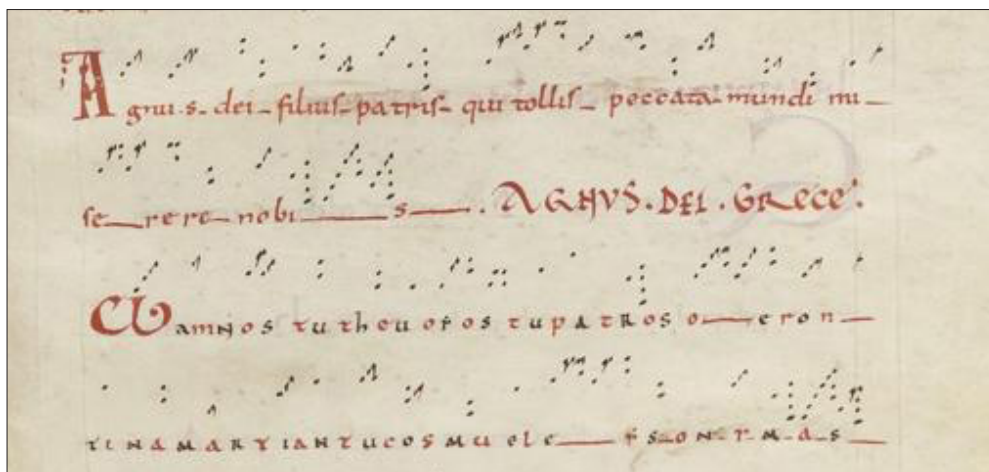 Agnu.s- dei- filius- patris- qui tollis- peccata- mundi mi-
se—re re- nobi—s—. AGNVS.DEI.GRECE.
O amnos tu theu o yos tu patros o—eron—
tinamartiantucosmu ele—ys-on-y-m-a-s